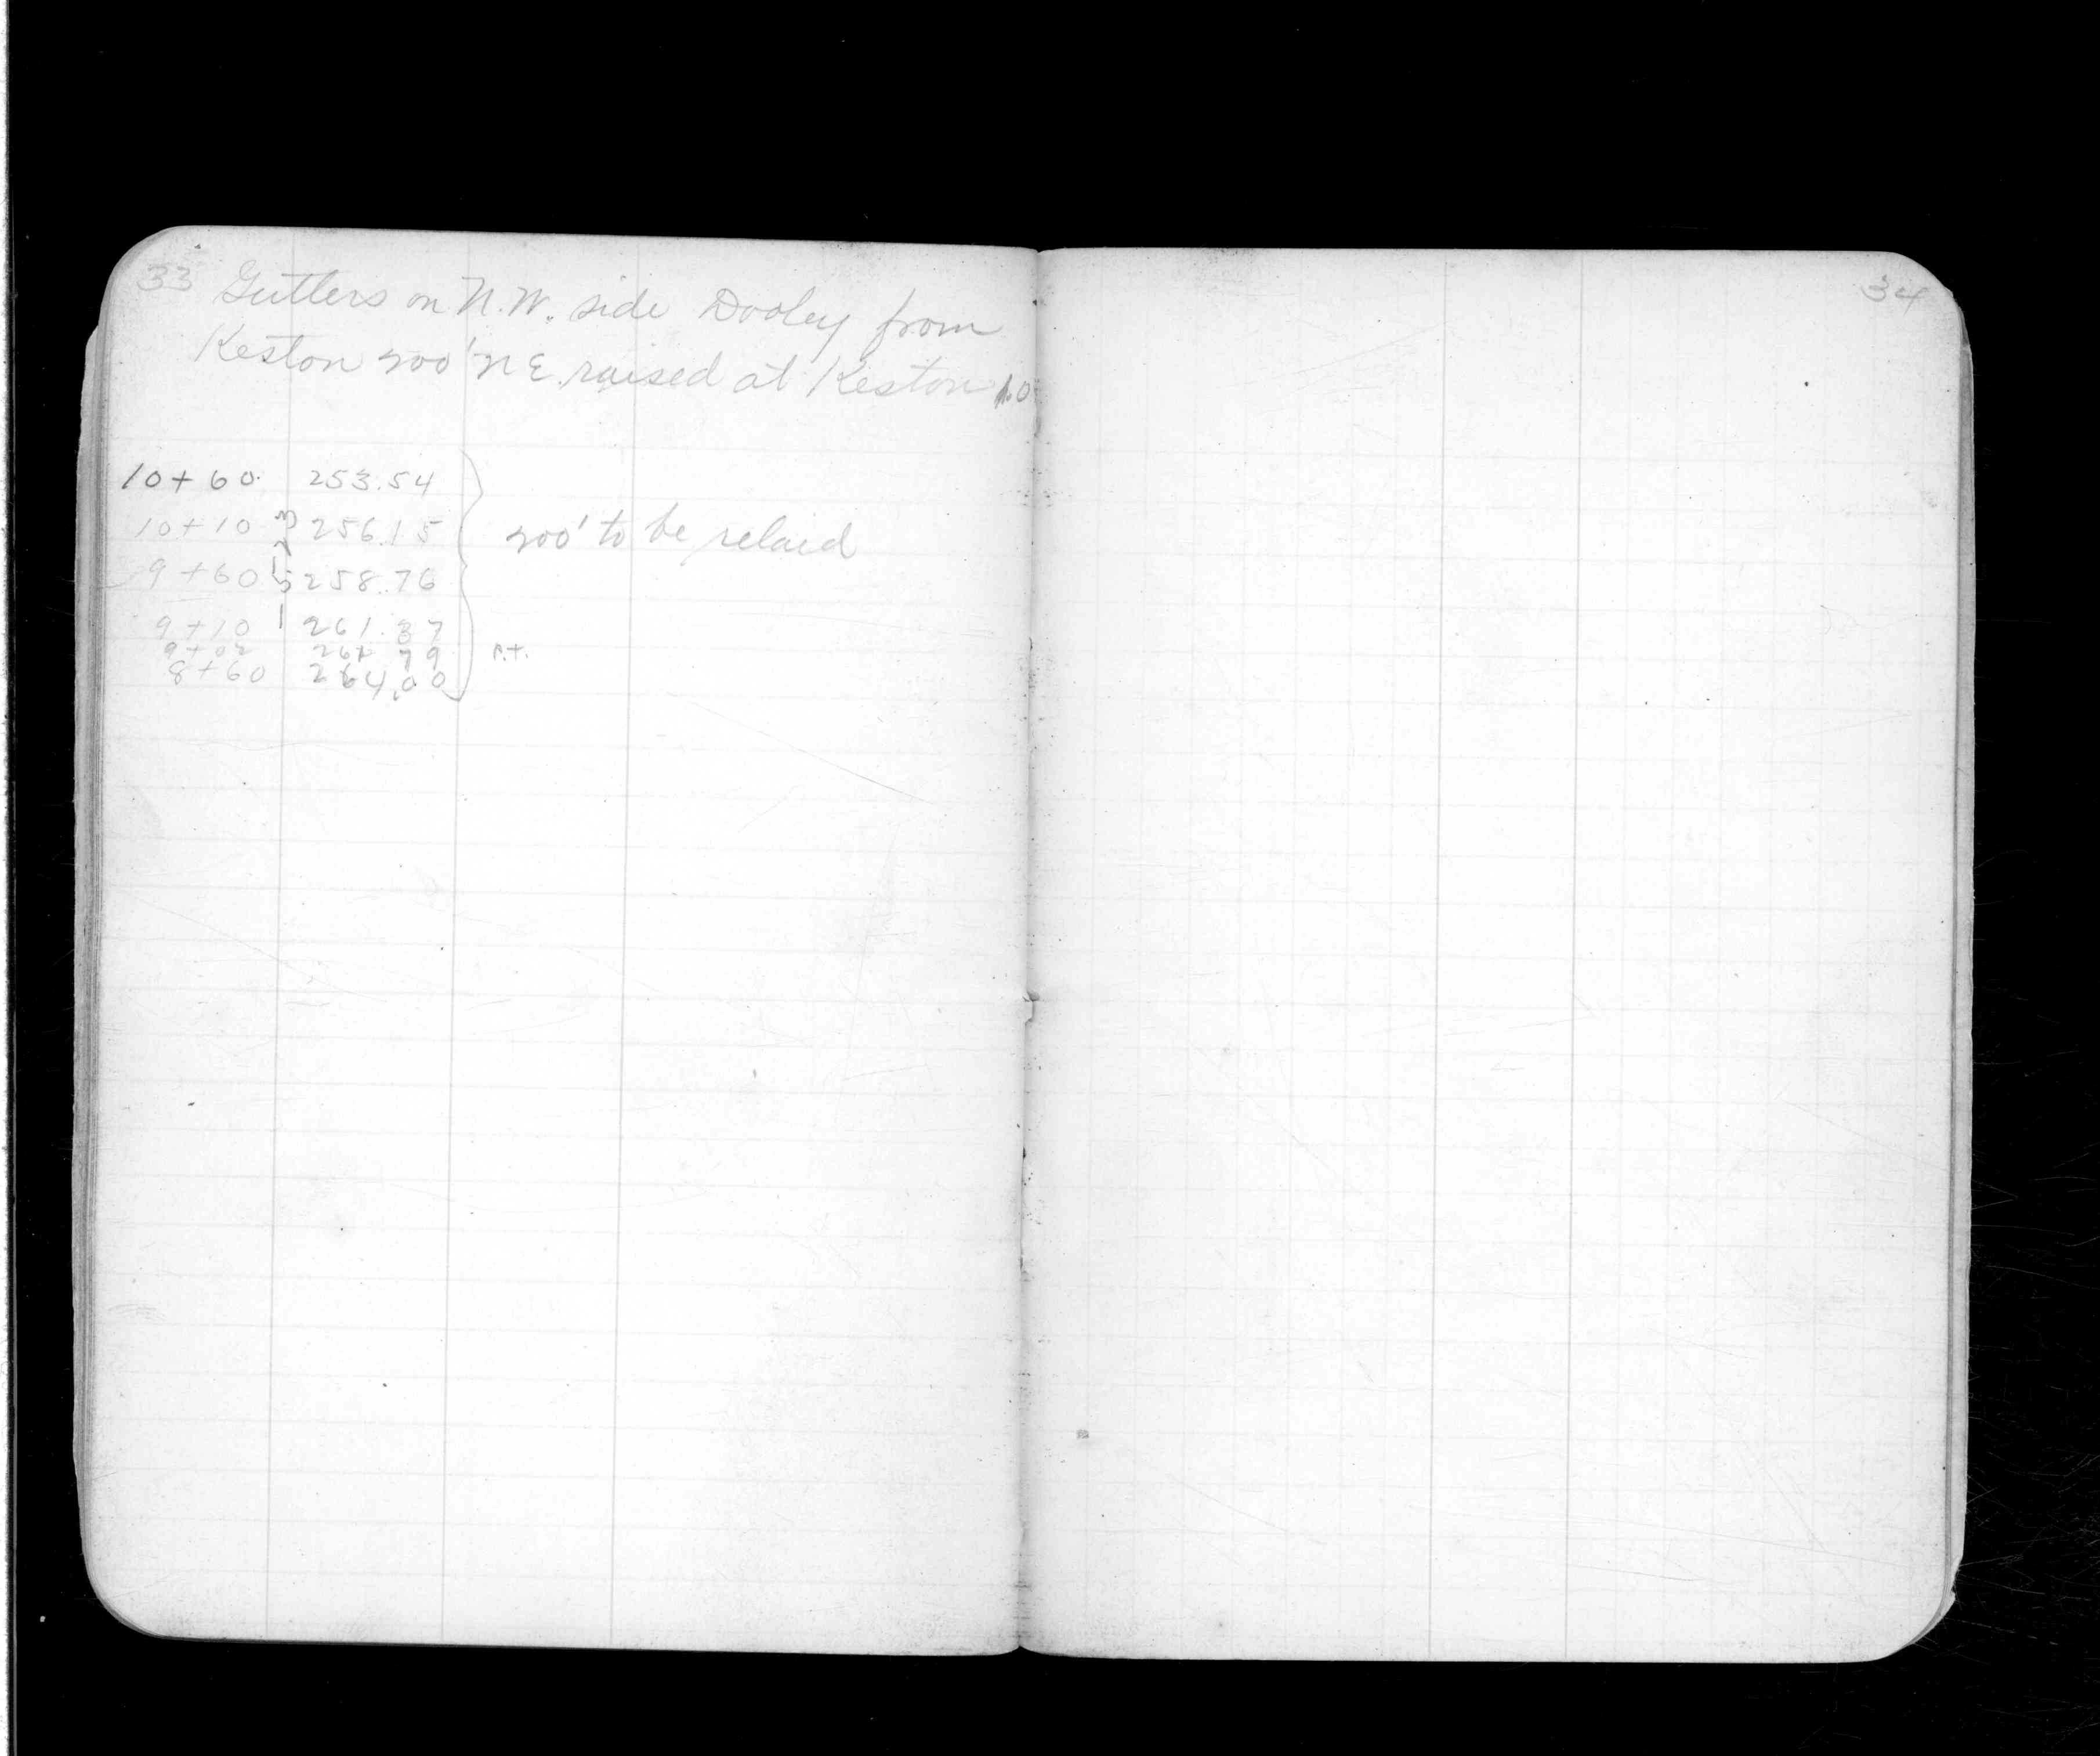 33 Gutters on N.W. side Dooley from
Keston 200' N E. raised at Keston 1.0
10+60 253.54
10+10 256.15
200' to be relaid
9+60 258.76
9+10 261.37
9+02 261 79 P.T.
8+60 264.00
34